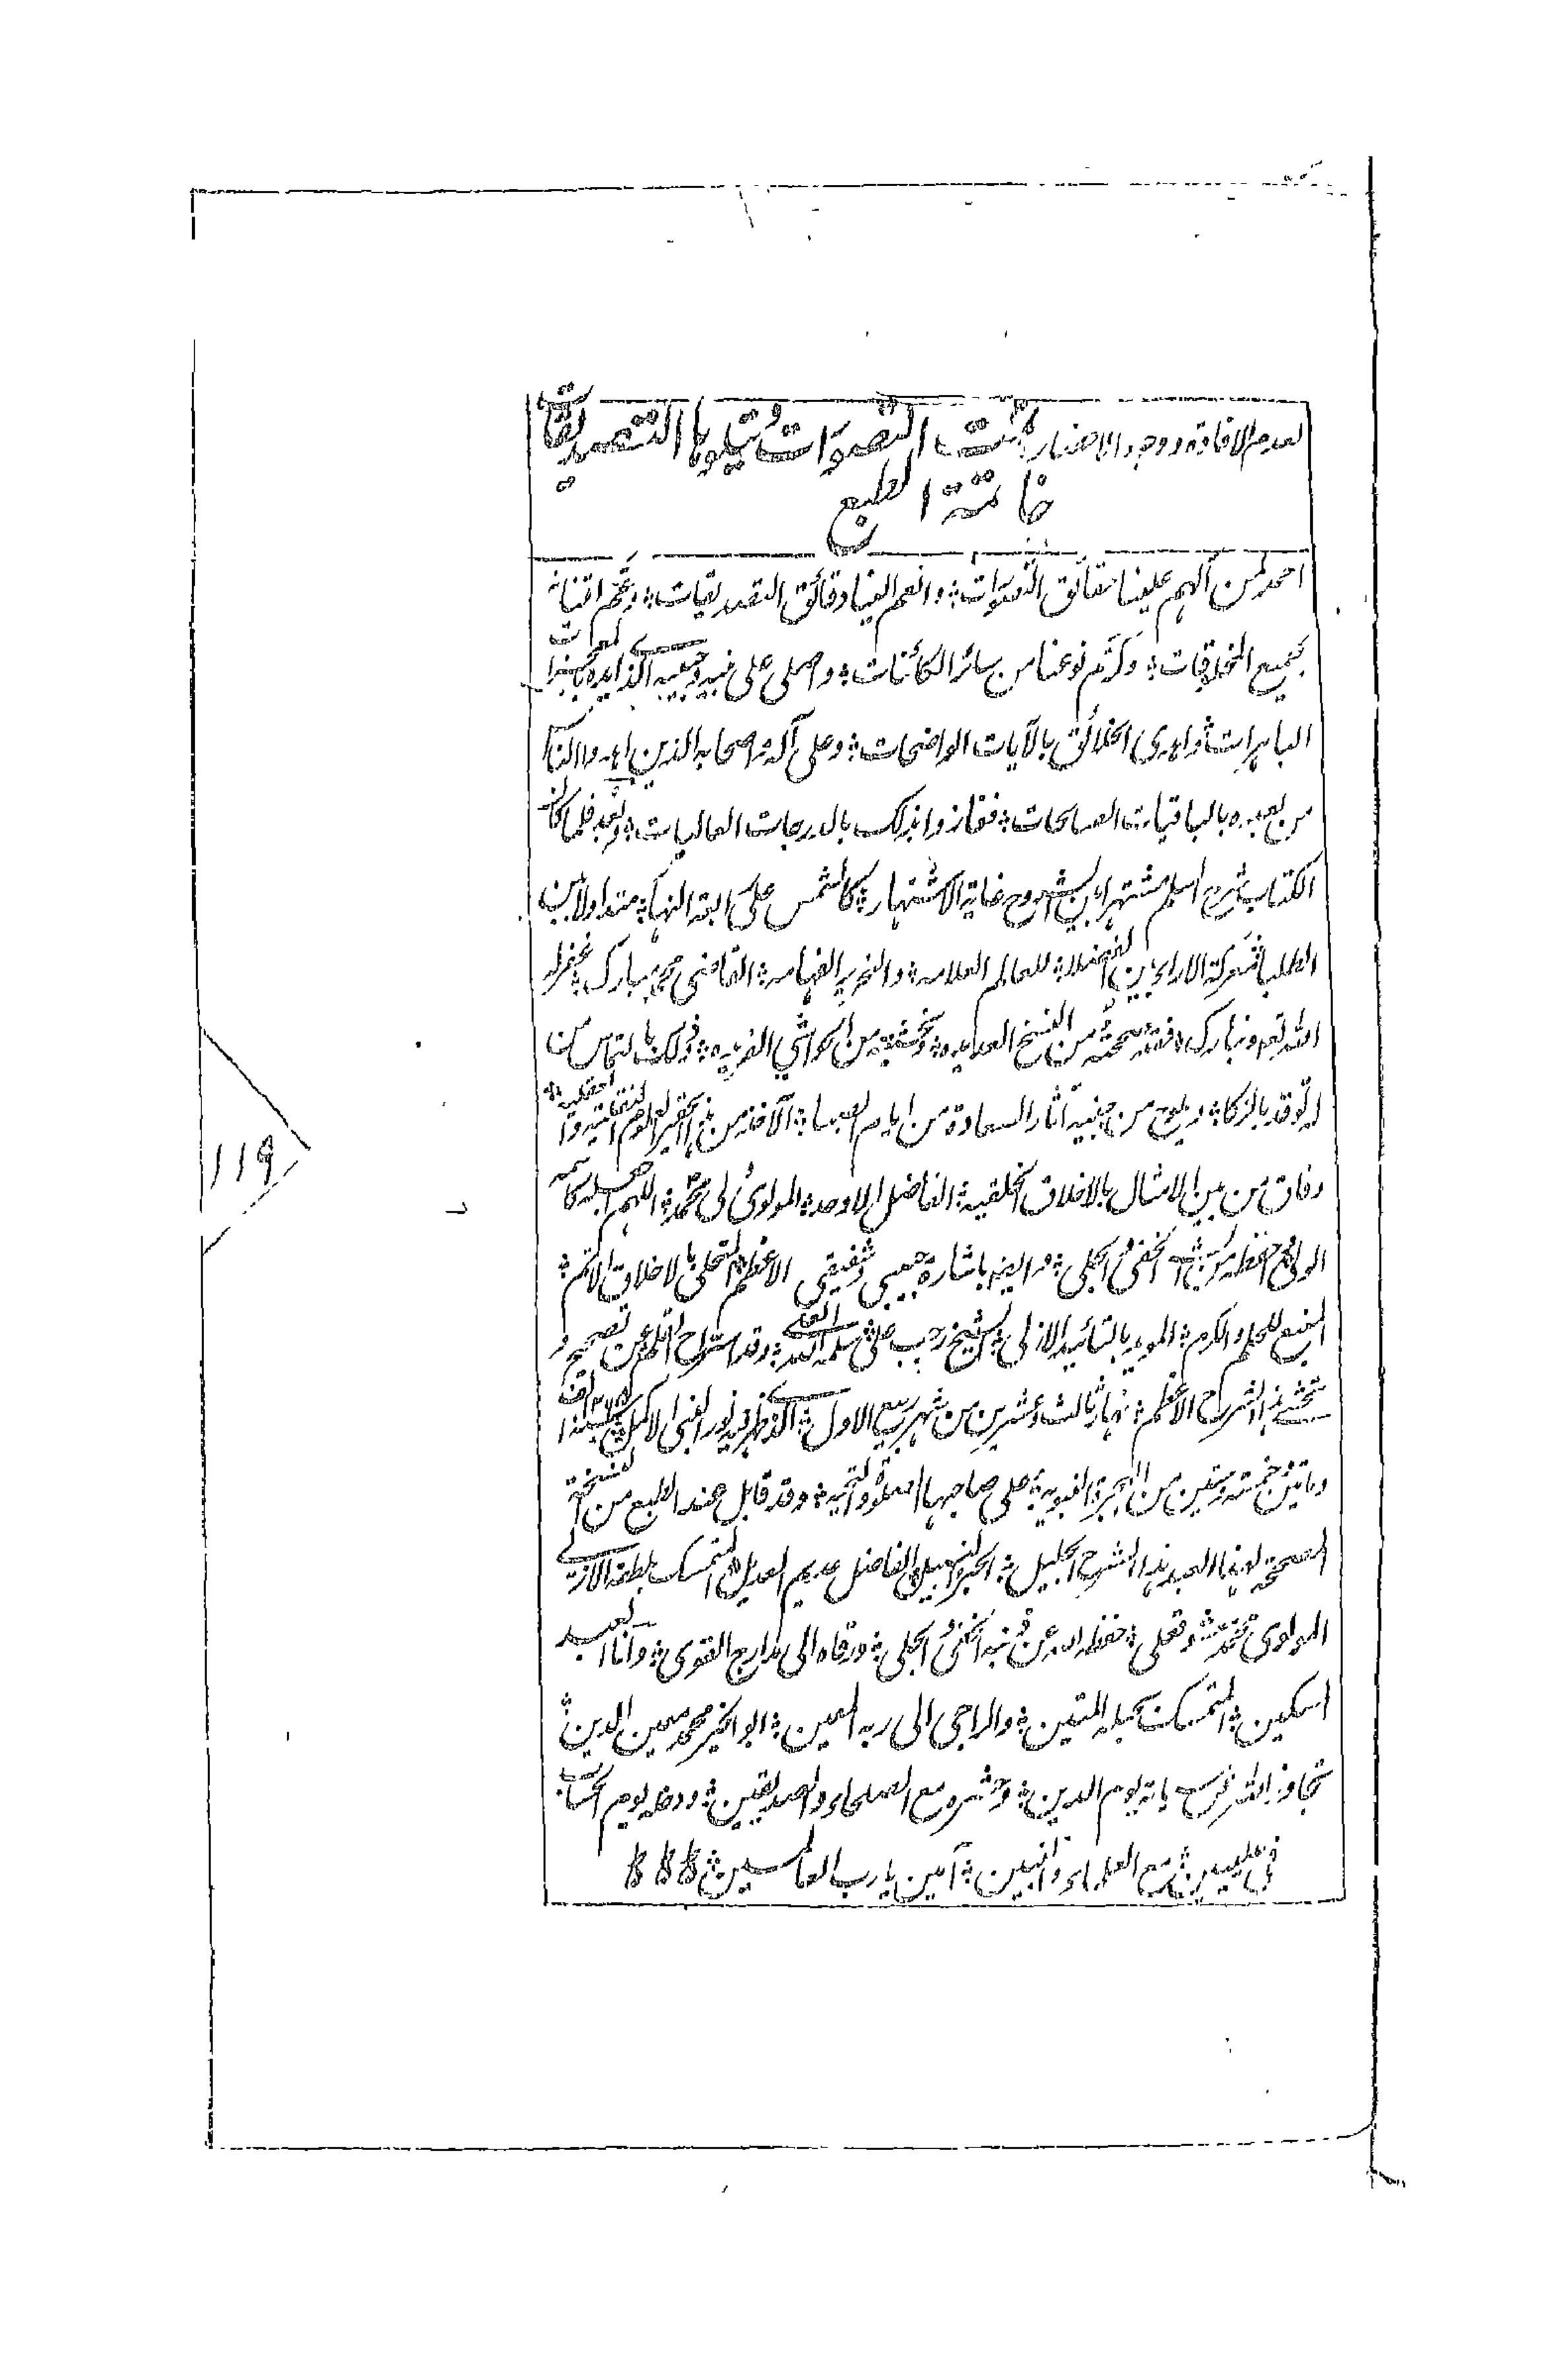 لعدم الافادة ووجود الاحضار؛ تمت التصورات ويتلوها التصديقات
خاتمة الطبع
احمد لمن الهم علينا حقائق التصورات؛ وانعم الينا دقائق التصديقات؛ وعم اتنانه
بجميع المخلوقات؛ وكرم نوعنا من سائر الكائنات؛ وصلى على نبيه وحبيبه الذي ايده
الباهرات؛ واهدى الخلائق بالآيات الواضحات؛ وعلى آله واصحابه الذين
من بعده بالباقيات الصالحات؛ ففازوا بذلك بالدرجات العاليات؛ وبعد فلما كان
الكتاب شرح السلم مشتهرا بين الشروح غاية الاشتهار؛ كالشمس على رابعة النهار؛ متداولا بين
الطلباء معركة الاراء بين الفضلاء؛ للعالم العلامه؛ والنحرير الفهامه؛ القاضي محمد مبارك؛ غفر له
الله تعالى وتبارك؛ فقد صححته من النسخ العديده؛ وحشيته من الحواشي الفريده؛ وذلك بالتماس من
توقد بالزكا؛ ويلوح من جبينه آثار السعادة من ايام الصبا؛ الآخذ من هذا الحقير العلوم النقلية والعقلية؛
وفاق من بين الامثال بالاخلاق الخلقيه؛ الفاضل الاوحد؛ المولوي ولي محمد؛ اللهم اجعله كاسمه
الولي حفظه من شر الخفي والجلي؛ وايضا باشارة حبيبي وشفيقي الاعظم المتحلي بالاخلاق الاتم؛
المنبع للحلم والكرم؛ المويد بالتائيد الازلي؛ الشيخ رجب علي سلمه الله العلي؛ وقد استراح القلم عن تصحيح و
تحشية هذا الشرح الاعظم؛ نهار ثالث وعشرين من شهر ربيع الاول؛ الذي ظهر فيه نور النبي الاكمل؛ الف
وماتين وخمسة وستين من الهجرة النبويه؛ على صاحبها الصلوة والتحيه؛ وقد قابل عند الطبع من النسخة
المصححة لهذا العبد هذا الشرح الجليل؛ الحبر النبيل الفاضل عديم العديل المتمسك بلطفه الازلي
المولوي محمد عشوقعلي؛ حفظه الله عن ذنبه الخفي والجلي؛ ورقاه الى مدارج القوى؛ وانا العبد
المسكين؛ المتمسك بحبله المتين؛ والراجي الى ربه المعين؛ ابو الخير محمد معين الدين؛
تجاوز الله عن سيئاته يوم الدين؛ وحشره مع الصلحاء والصديقين؛ ودخله يوم الحساب
في عليين؛ مع العلماء والنبيين؛ آمين يا رب العالمين؛
119